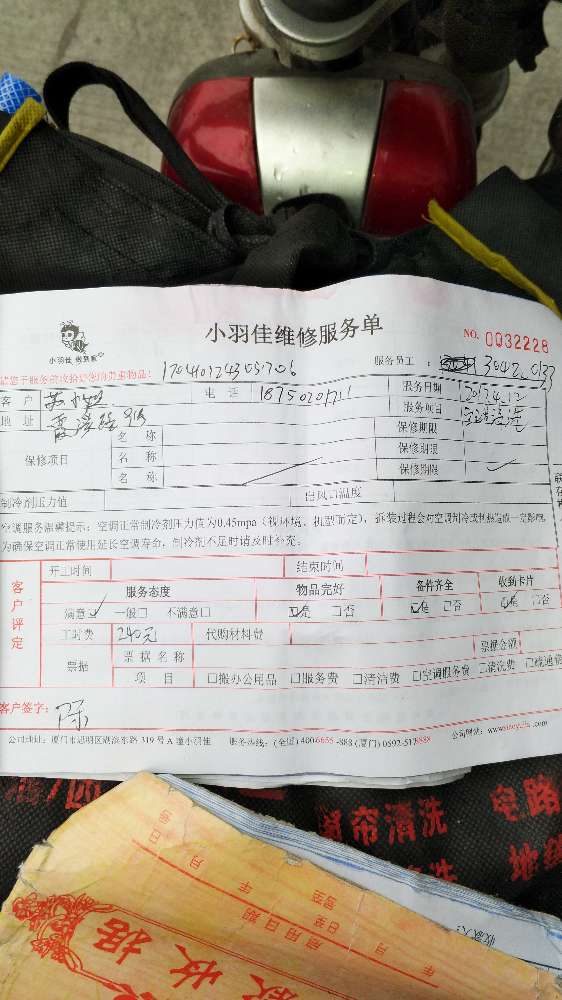 小羽佳维修服务单
NO. 0032228
小羽佳 做到家
请您于服务前收拾好您的贵重物品!
服务员工: 3042.0133
客户 电话 18750201711 服务日期 2017.4.12
地址 服务项目
保修项目 名称 保修期限
名称 保修期限
名称 保修期限
制冷剂压力值 出风口温度
空调服务温馨提示:空调正常制冷剂压力值为0.45mpa(视环境、机型而定),拆装过程会对空调制冷或制热造成一定影响,
为确保空调正常使用延长空调寿命,制冷剂不足时请及时补充;
客户评定
开工时间 结束时间
服务态度 物品完好 备件齐全 收到卡片
满意☑ 一般□ 不满意□ ☑是 □否 ☑是 □否 ☑是 □否
工时费 240元 代购材料费
票据 票据名称 票据金额
项目 □搬办公用品 □服务费 □清洁费 □空调服务费 □清洗费 □疏通费
客户签字: 陈
公司地址:厦门市思明区湖滨东路319号A幢小羽佳 服务热线:(全国)4006655-888(厦门)0592-5178888 公司网站:
窗帘清洗 电路
收款人:
年 月 日
收据